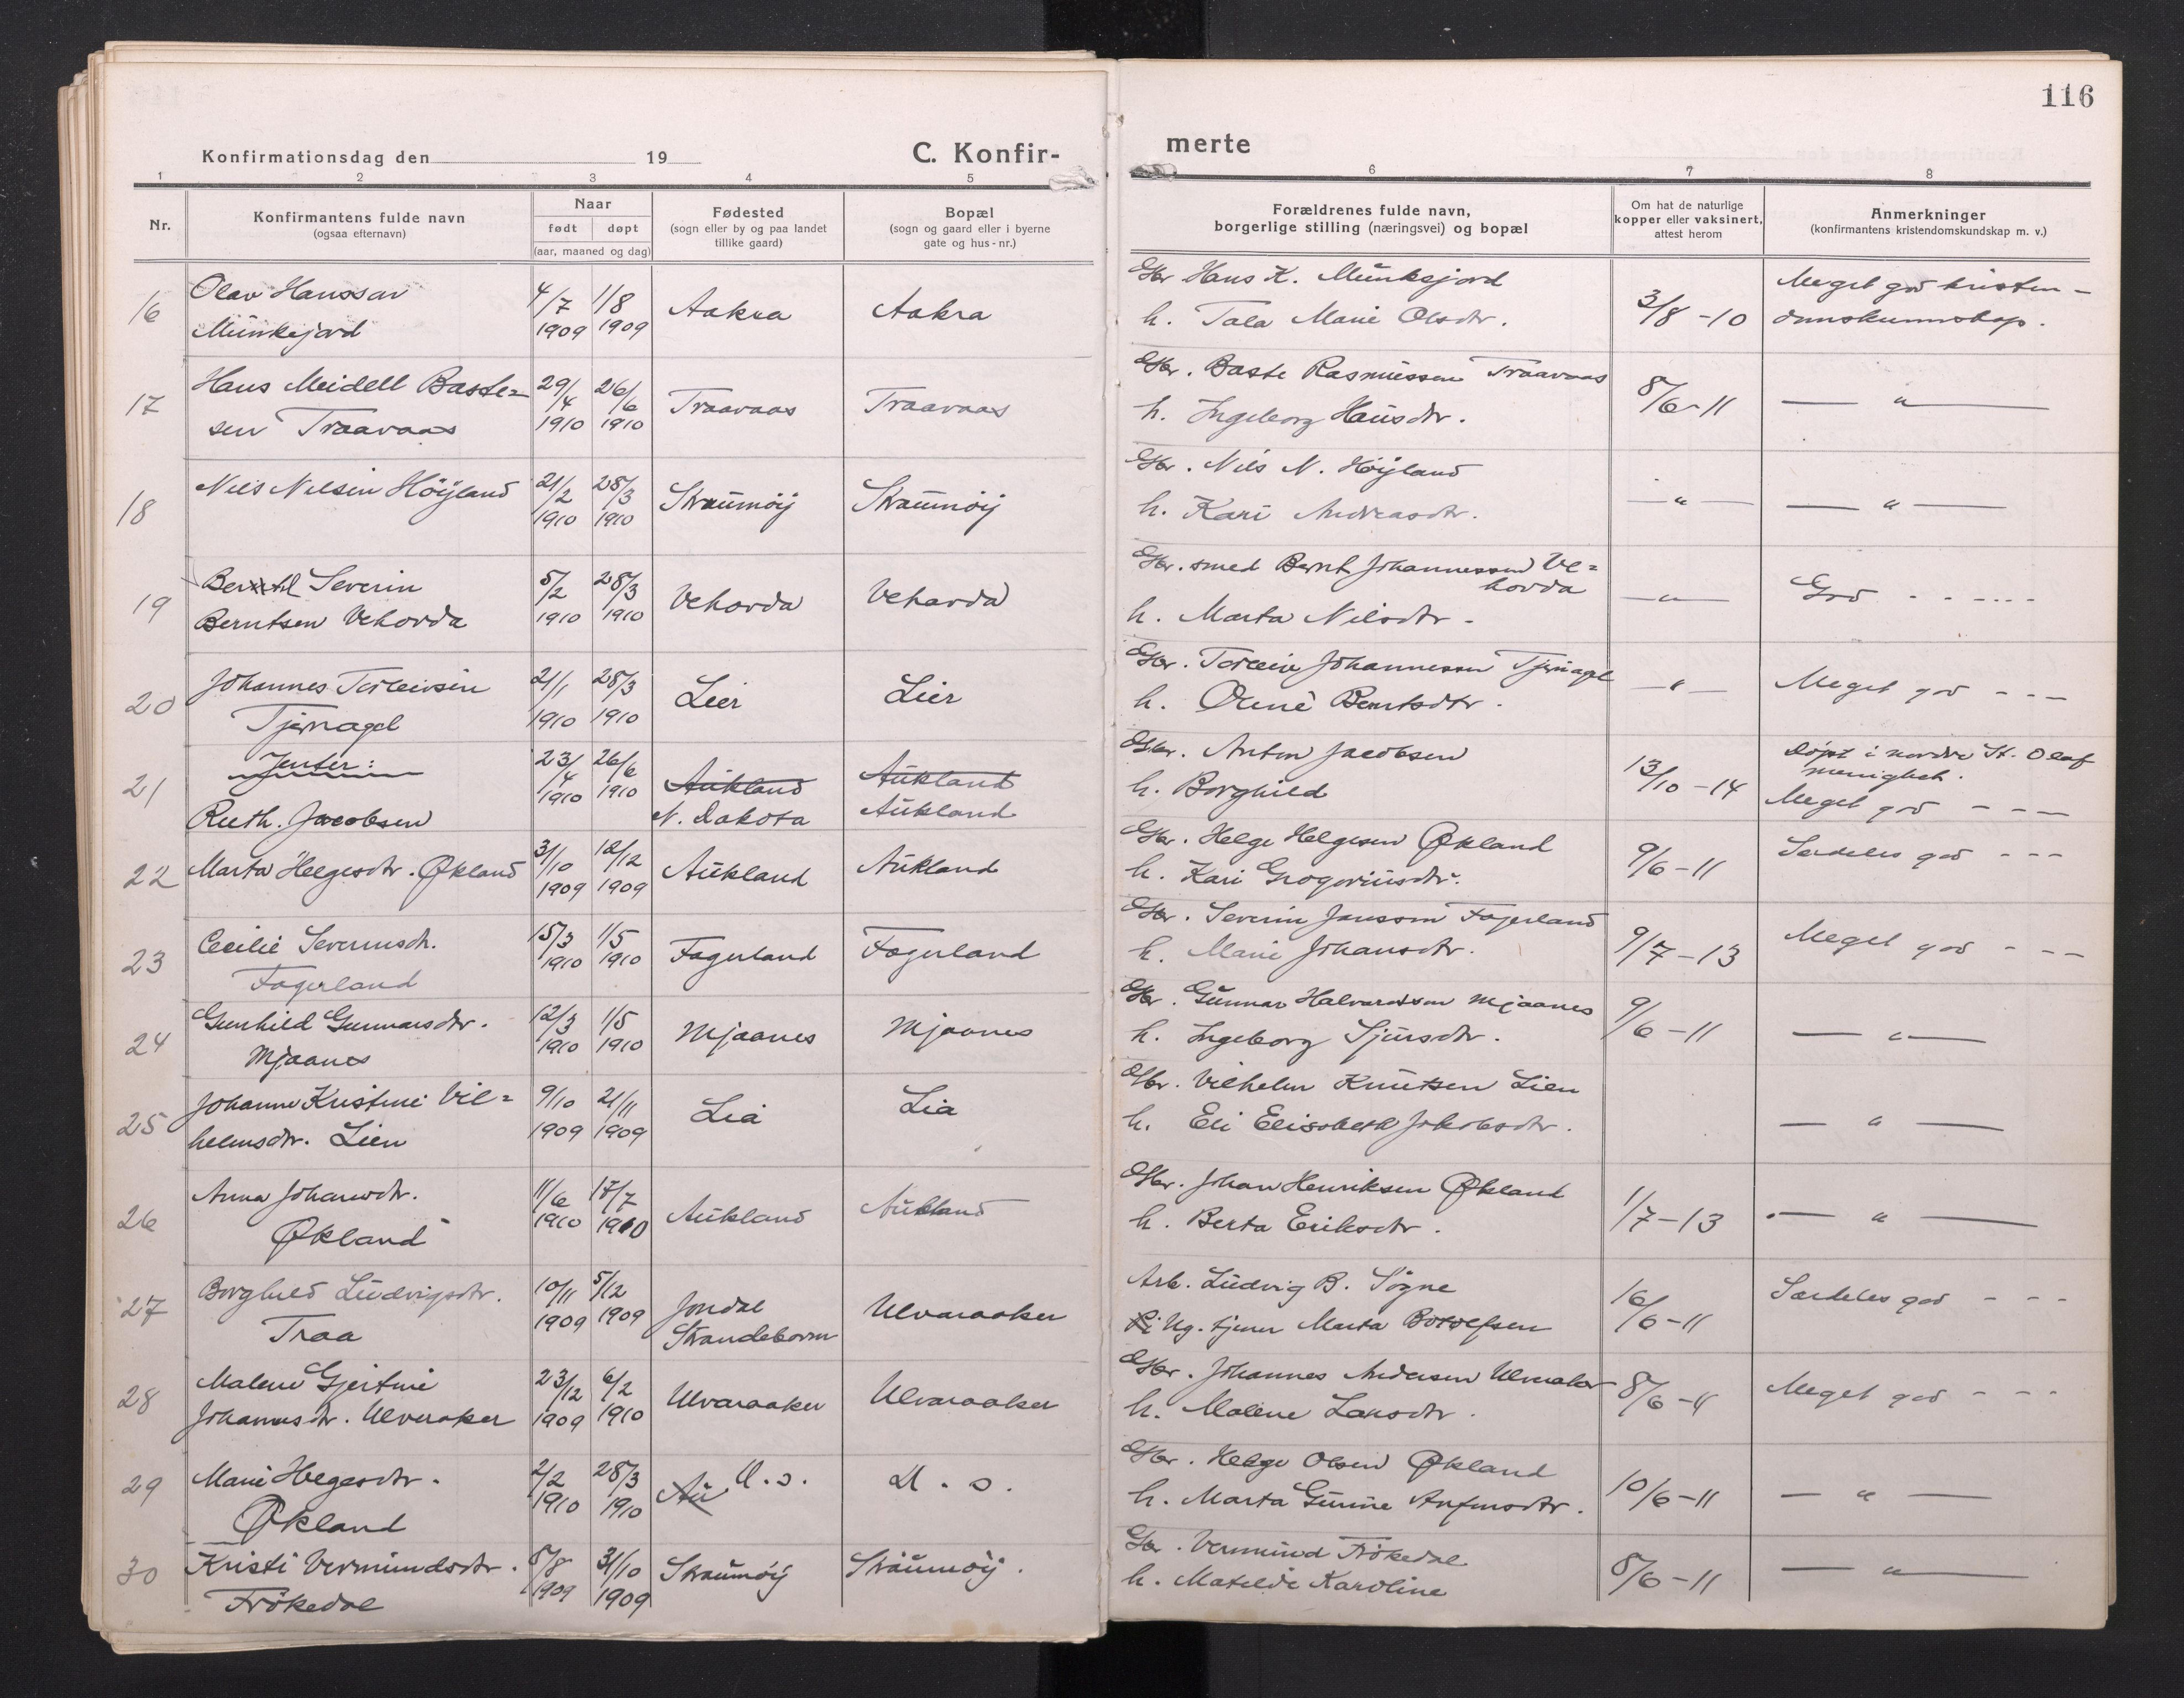 116
Konfirmationsdag den 19
C. Konfir-
merte
1 2 3 4 5 6 7 8
Nr.
Konfirmantens fulde navn
(ogsaa efternavn)
Naar
født døpt
(aar, maaned og dag)
Fødested
(sogn eller by og paa landet
tillike gaard)
Bopæl
(sogn og gaard eller i byerne
gate og hus-nr.)
Forældrenes fulde navn,
borgerlige stilling (næringsvei) og bopæl
Om hat de naturlige
kopper eller vaksinert,
attest herom
Anmerkninger
(konfirmantens kristendomskundskap m. v.)
16 Olav Hanssøn 4/7 1/8 Aakra Aakra Gbr Hans K. Munkejord 3/8-10 Meget god kristen-
Munkejord 1909 1909 h. Tala Marie Olsdtr. domskunnskap.
17 Hans Meidell Baste= 29/4 26/6 Traavaas Traavaas Gbr. Baste Rasmussen Traavaas 8/6-11 — " —
sen Traavaas 1910 1910 h. Ingeborg Hansdtr.
18 Nils Nilsen Höyland 21/2 28/3 Straumöy Straumöy Gbr. Nils N. Höyland — " — — " —
1910 1910 h. Kari Andreasdtr.
19 Severin 5/2 28/3 Vehovda Vehovda Gbr. smed Bernt Johannessen Ve= — " — God - - - - -
hovda
Berntsen Vehovda 1910 1910 h. Marta Nilsdtr.
20 Johannes Torleivsen 21/1 28/3 Lier Lier Gbr. Torleiv Johannessen Tjernagel — " — Meget god - - -
Tjernagel 1910 1910 h. Berntsdtr.
Jenter:
21 23/4 26/6 Aukland Aukland Gbr. Anton Jacobsen 13/10-14 Döpt i nordre St. Olaf
menighet.
Ruth. Jacobsen 1910 1910 N. Dakota Aukland h. Borghild Meget god - - -
22 Marta Helgesdtr. Økland 31/10 12/12 Aukland Aukland Gbr. Helge Helgesen Økland 9/6-11 Særdeles god - - -
1909 1909 h. Kari Gregoriusdtr.
23 Cecilie Severinsdtr. 15/3 1/5 Fagerland Fagerland Gbr. Severin Jansson Fagerland 9/7-13 Meget god - - -
Fagerland 1910 1910 h. Marie Johansdtr.
24 Gunhild Gunnarsdtr. 12/3 1/5 Mjaanes Mjaanes Gbr. Gunnar Halvardsson Mjaanes 9/6-11 — " —
Mjaanes 1910 1910 h. Ingeborg Sjursdtr.
25 Johanne Kristine Vil= 9/10 21/11 Lia Lia Gbr. Vilhelm Knutsen Lien — " —
helmsdtr. Lien 1909 1909 h. Eli Elisabeth Jakobsdtr.
26 Anna Johansdtr. 11/6 17/7 Aukland Aukland Gbr. Johan Henriksen Økland 1/7-13 — " —
Økland 1910 1910 h. Berta Eriksdtr.
27 Borghild Ludvigsdtr. 10/11 5/12 Jondal Ulvaraaker Arb. Ludvig B. Sögne 16/6-11 Særdeles god - - -
Traa 1909 1909 Strandebarm Ug. tjener Marta Botolfsen
28 Malene Gjertine 23/12 6/2 Ulvaraaker Ulvaraaker Gbr. Johannes Andersen Ulveraker 8/6-11 Meget god - - -
Johannesdtr. Ulveraker 1909 1910 h. Malene Larsdtr.
29 Marie Helgesdtr. 2/2 28/3 Au d. s. d. s. Gbr. Helge Olsen Økland 10/6-11 — " —
Økland 1910 1910 h. Marta Gurine Anfinsdtr.
30 Kristi Vermundsdtr. 8/8 31/10 Straumöy Straumöy. Gbr. Vermund Frökedal 8/6-11 — " —
Frökedal 1909 1909 h. Matilde Karoline